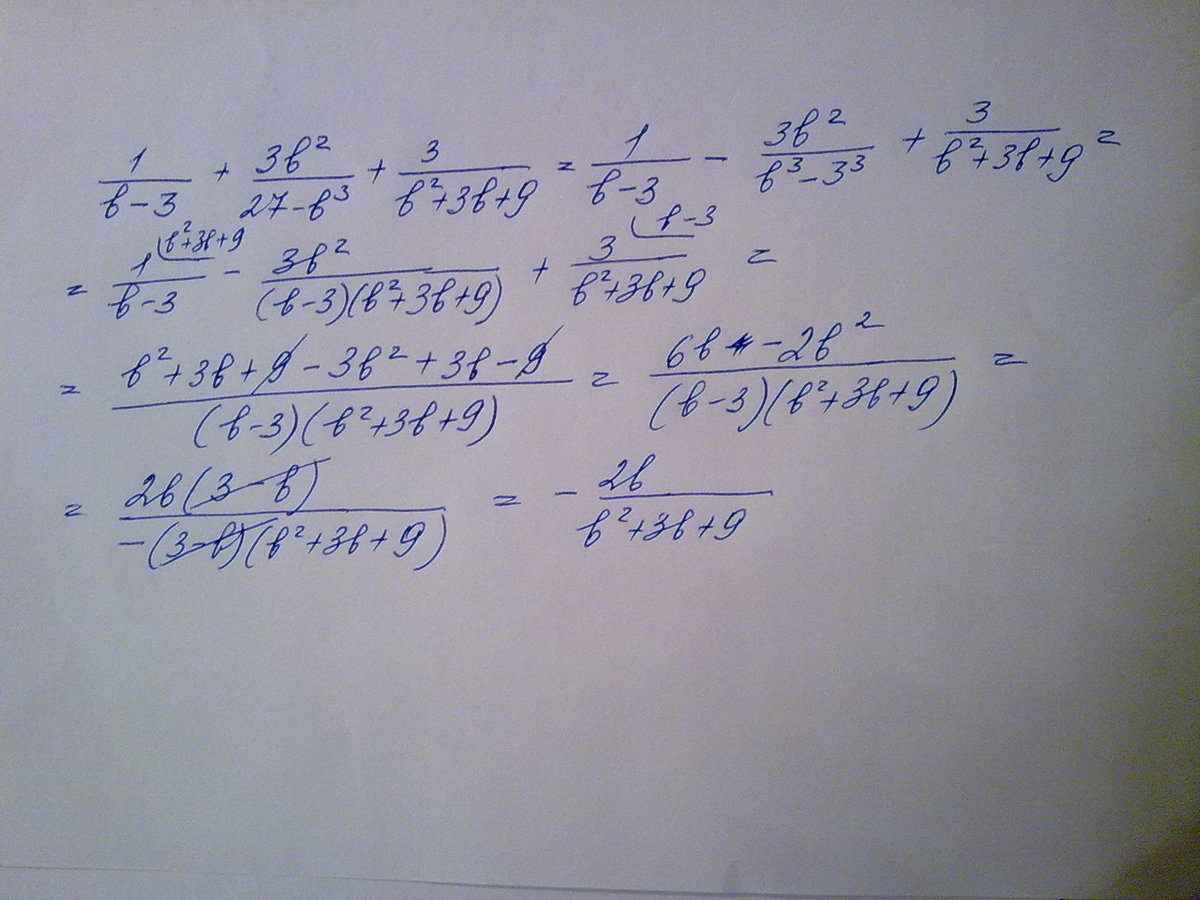 1/(b-3) + 3b²/(27-b³) + 3/(b²+3b+9) = 1/(b-3) - 3b²/(b³-3³) + 3/(b²+3b+9) =
= 1\b²+3b+9/(b-3) - 3b²/((b-3)(b²+3b+9)) + 3\b-3/(b²+3b+9) =
= (b²+3b+9-3b²+3b-9)/((b-3)(b²+3b+9)) = (6b-2b²)/((b-3)(b²+3b+9)) =
= 2b(3-b)/(-(3-b)(b²+3b+9)) = - 2b/(b²+3b+9)